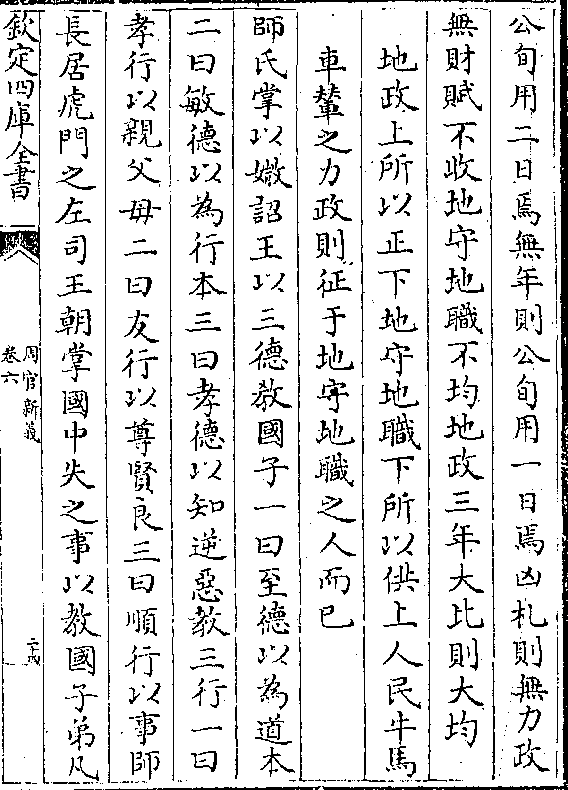 公旬用二日焉無年則公旬用一日焉凶札則無力政
無財賦不收地守地職不均地政三年大比則大均
地政上所以正下地守地職下所以供上人民牛馬
車輦之力政則征于地守地職之人而已
師氏掌以媺詔王以三德教國子一曰至德以為道本
二曰敏德以為行本三曰孝德以知逆惡教三行一曰
孝行以親父母二曰友行以尊賢良三曰順行以事師
長居虎門之左司王朝掌國中失之事以教國子弟凡
欽定四庫全書
周官新義
卷六
二十四